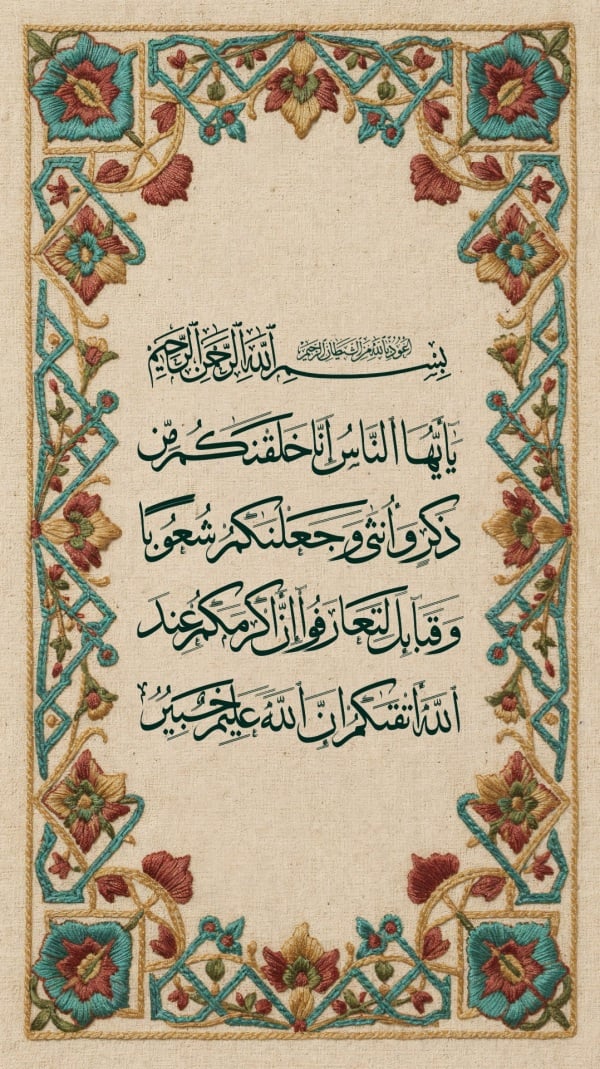 أعوذ بالله من الشيطان الرجيم
بِسْمِ ٱللَّهِ ٱلرَّحْمَٰنِ ٱلرَّحِيمِ
يَٰٓأَيُّهَا ٱلنَّاسُ إِنَّا خَلَقْنَٰكُم مِّن
ذَكَرٍ وَأُنثَىٰ وَجَعَلْنَٰكُمْ شُعُوبًا
وَقَبَآئِلَ لِتَعَارَفُوٓا۟ إِنَّ أَكْرَمَكُمْ عِندَ
ٱللَّهِ أَتْقَىٰكُمْ إِنَّ ٱللَّهَ عَلِيمٌ خَبِيرٌ